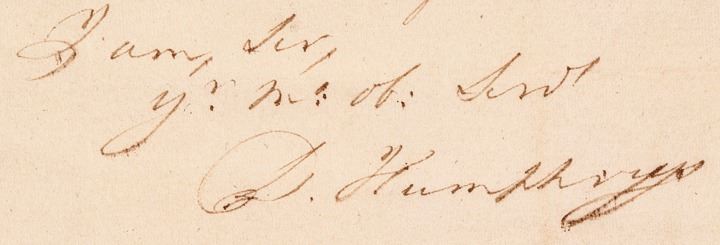 I am, Sir,
yr. mo. ob. Servt
D. Humphreys